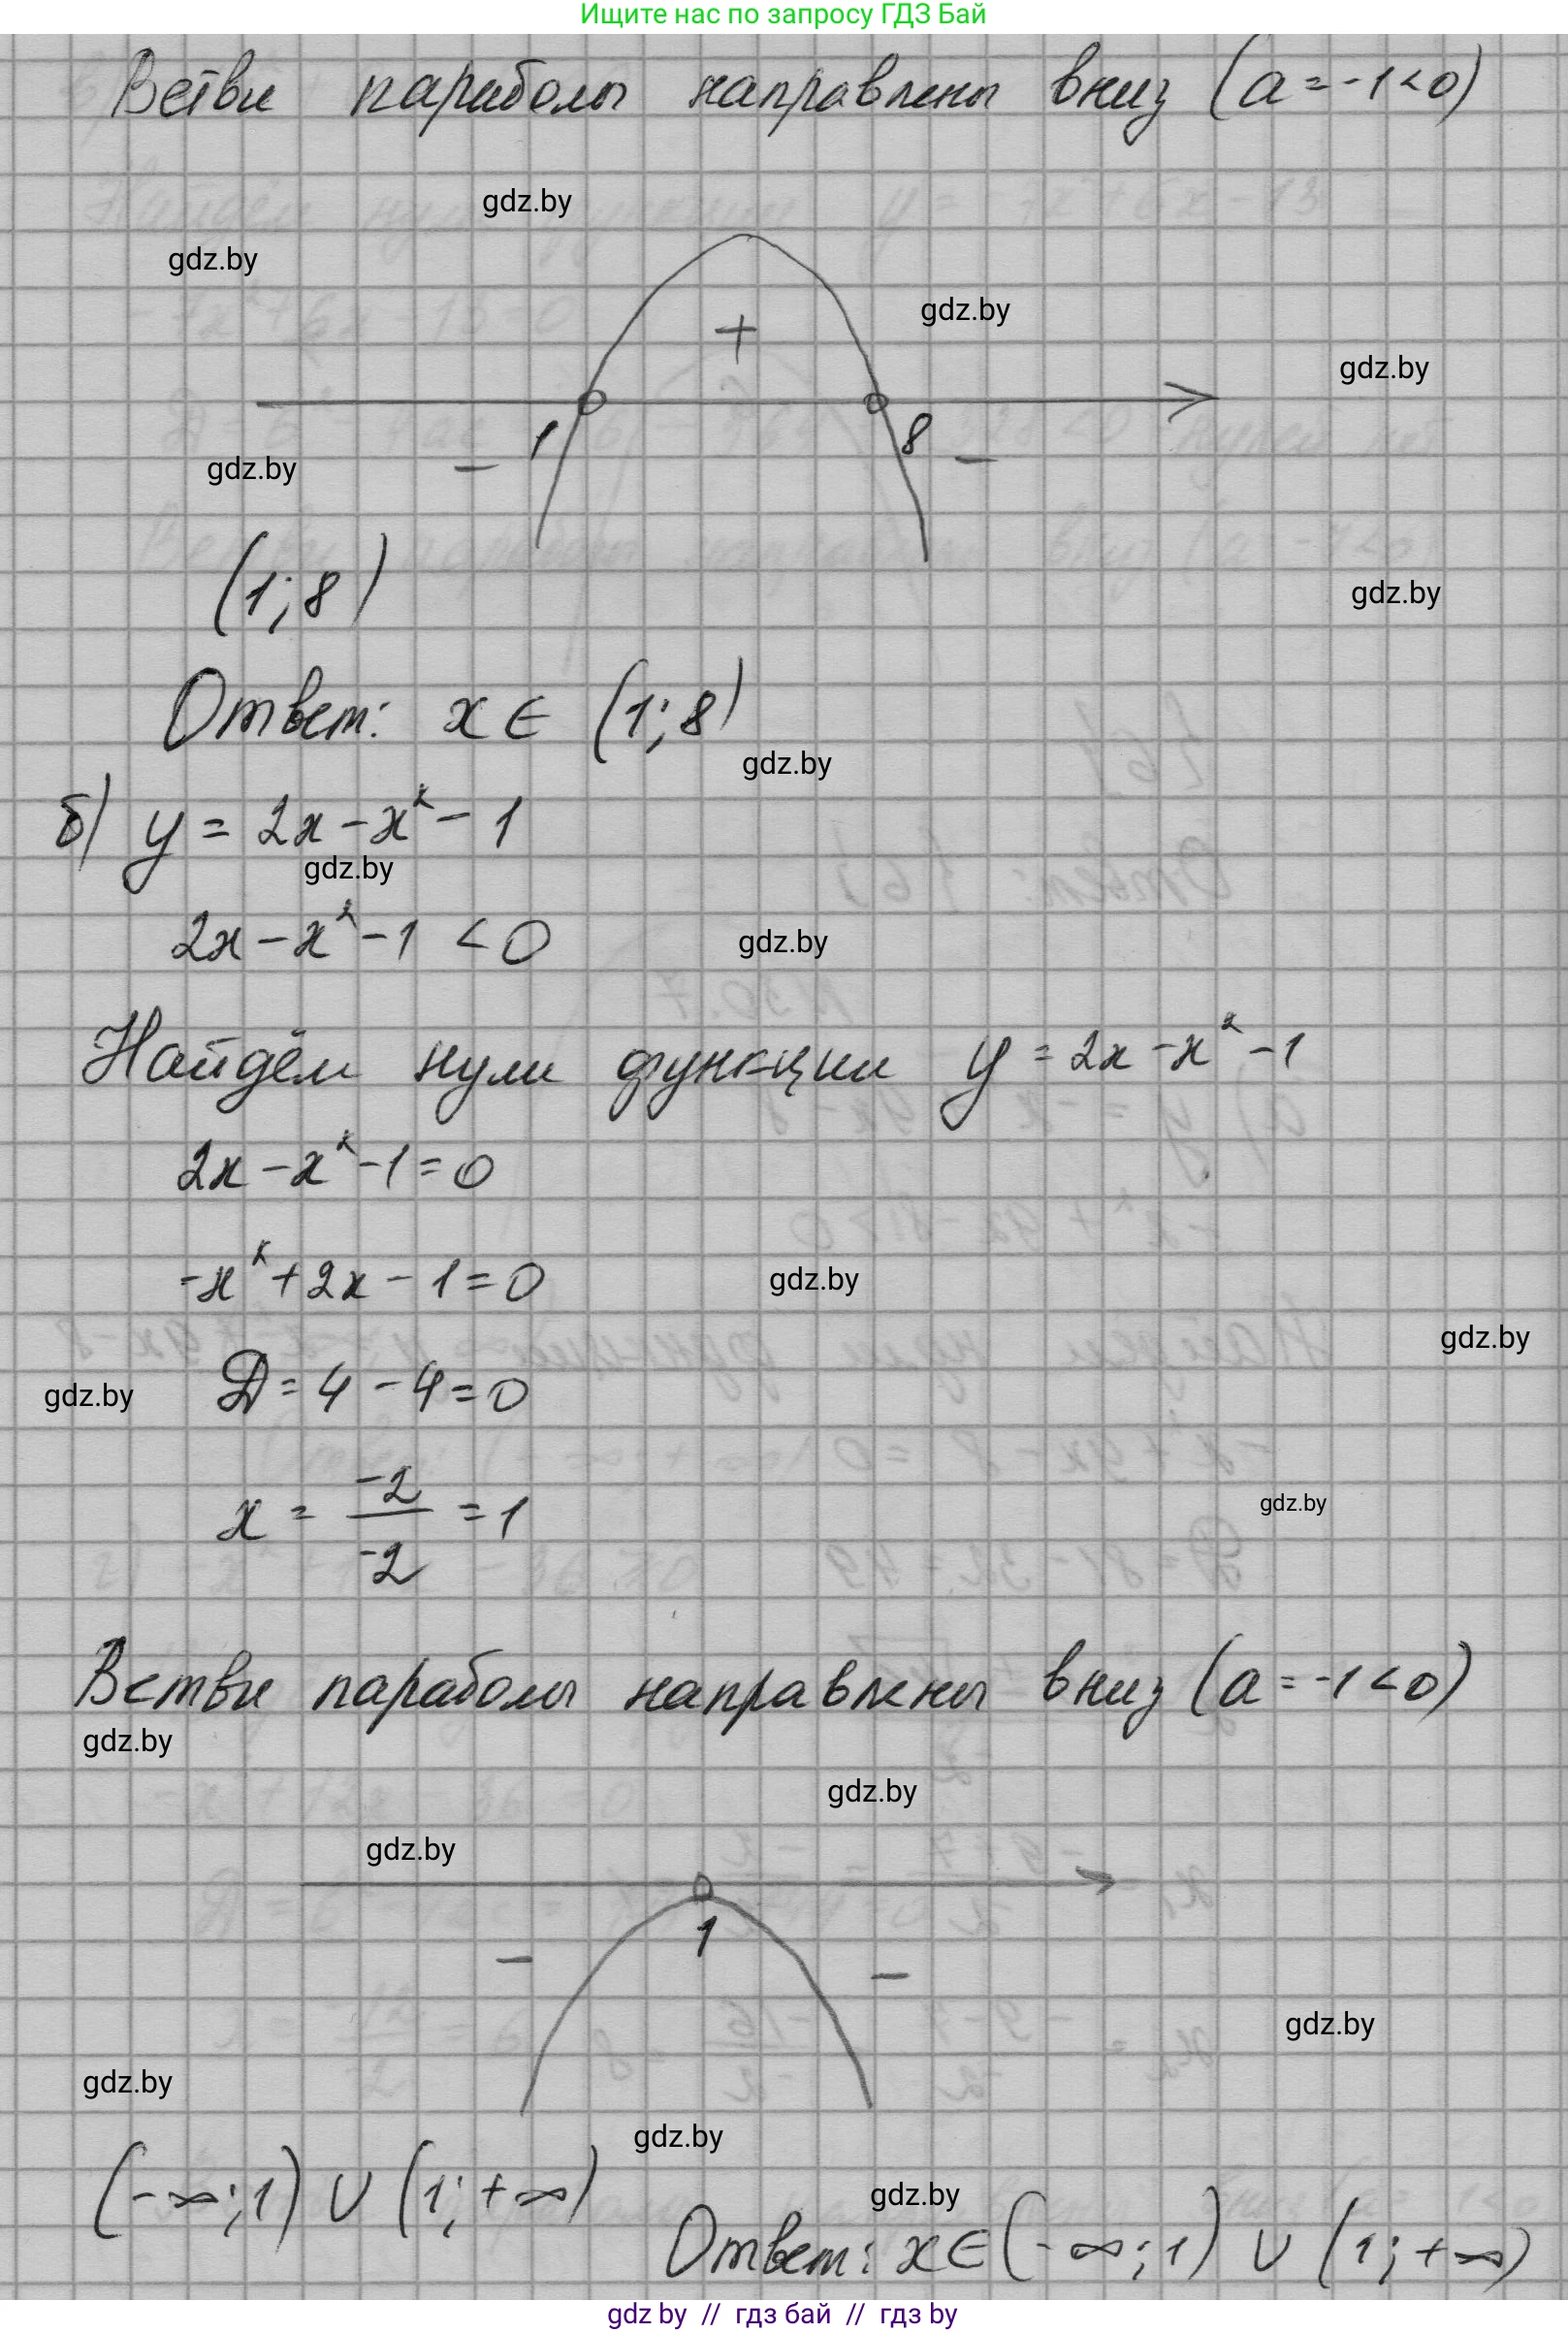 Ищите нас по запросу ГДЗ Бай
Ветви параболы направлены вниз (a = -1 < 0)
gdz.by
gdz.by
gdz.by
+
gdz.by
1
8
gdz.by
−
−
(1; 8)
gdz.by
Ответ: x ∈ (1; 8)
gdz.by
б) y = 2x - x² - 1
gdz.by
2x - x² - 1 < 0
gdz.by
Найдём нули функции y = 2x - x² - 1
2x - x² - 1 = 0
-x² + 2x - 1 = 0
gdz.by
gdz.by
D = 4 - 4 = 0
gdz.by
x = -2/-2 = 1
gdz.by
Ветви параболы направлены вниз (a = -1 < 0)
gdz.by
gdz.by
gdz.by
1
−
−
gdz.by
gdz.by
gdz.by
(-∞; 1) ∪ (1; +∞)
gdz.by
Ответ: x ∈ (-∞; 1) ∪ (1; +∞)
gdz by // гдз бай // гдз by